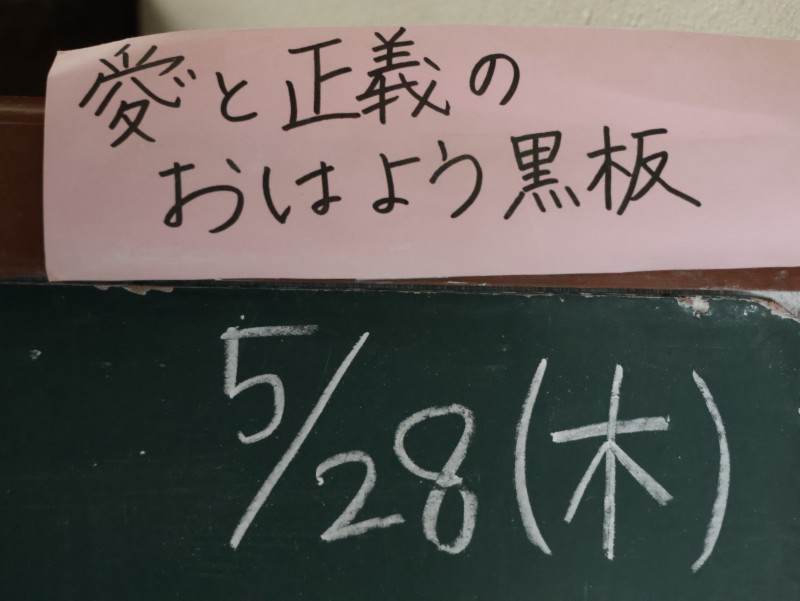 愛と正義の
おはよう黒板
5/28(木)